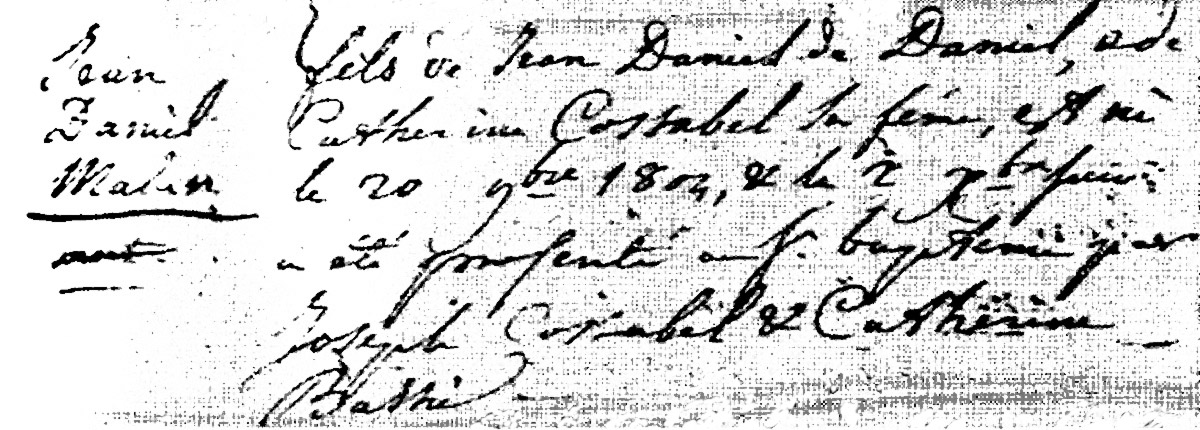 Jean
Daniel
Malan
mort
fils de Jean Daniel de Daniel, & de
Catherine Costabel sa féme, est né
le 20 9bre 1804, & le 2 Xbre suiv:
a été présenté au St. baptême par
Joseph Costabel & Catherine